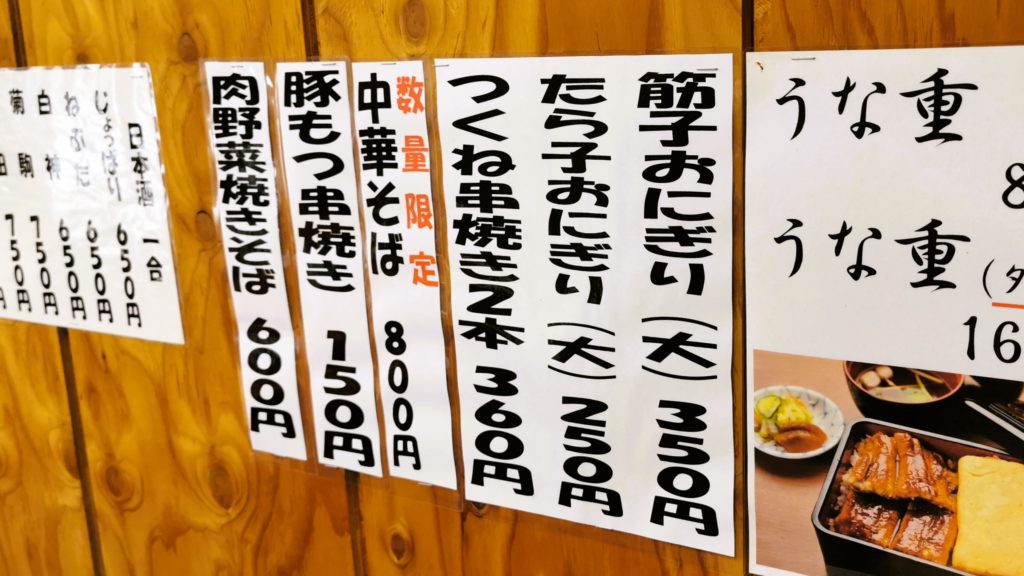 うな重
8
うな重
(タ
16
筋子おにぎり(大) 350円
たら子おにぎり(大) 250円
つくね串焼き2本 360円
数量限定
中華そば 800円
豚もつ串焼き 150円
肉野菜焼きそば 600円
日本酒 一合
じょっぱり 650円
ねぶた 650円
白神 750円
駒 750円
菊